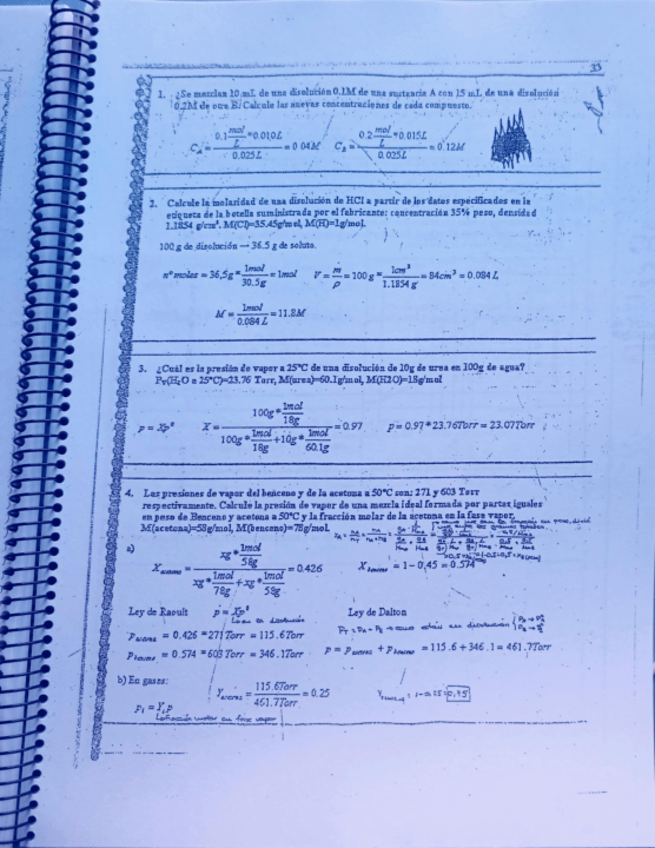 33
1. ¿Se mezclan 10 mL de una disolución 0.1M de una sustancia A con 15 mL de una disolución
0.2M de otra B. Calcule las nuevas concentraciones de cada compuesto.
C_A = (0.1 mol/L * 0.010L) / 0.025L = 0.04M   C_B = (0.2 mol/L * 0.015L) / 0.025L = 0.12M
2. Calcule la molaridad de una disolución de HCl a partir de los datos especificados en la
etiqueta de la botella suministrada por el fabricante: concentración 35% peso, densidad
1.1854 g/cm³. M(Cl)=35.45g/mol, M(H)=1g/mol.
100 g de disolución — 36.5 g de soluto.
nº moles = 36,5g * 1mol/30.5g = 1mol   V = m/ρ = 100 g * 1cm³/1.1854 g = 84cm³ = 0.084 L
M = 1mol/0.084 L = 11.8M
3. ¿Cuál es la presión de vapor a 25ºC de una disolución de 10g de urea en 100g de agua?
P_T(H₂O a 25ºC)=23.76 Torr, M(urea)=60.1g/mol, M(H2O)=18g/mol
p = Xp⁰   X = (100g * 1mol/18g) / (100g * 1mol/18g + 10g * 1mol/60.1g) = 0.97   p = 0.97 * 23.76Torr = 23.07Torr
4. Las presiones de vapor del benceno y de la acetona a 50ºC son: 271 y 603 Torr
respectivamente. Calcule la presión de vapor de una mezcla ideal formada por partes iguales
en peso de Benceno y acetona a 50ºC y la fracción molar de la acetona en la fase vapor,
M(acetona)=58g/mol, M(benceno)=78g/mol.
a)
X = (xg * 1mol/58g) / (xg * 1mol/78g + xg * 1mol/58g) = 0.426   X = 1 - 0,45 = 0.574
Ley de Raoult   p = Xp⁰   Ley de Dalton
P = 0.426 * 271 Torr = 115.6Torr
P = 0.574 * 603 Torr = 346.1Torr   p = p + p = 115.6 + 346.1 = 461.7Torr
b) En gases:
Y = 115.6Torr/461.7Torr = 0.25   1-0.25 = 0,75
p₁ = Y₁p
fracción molar en fase vapor